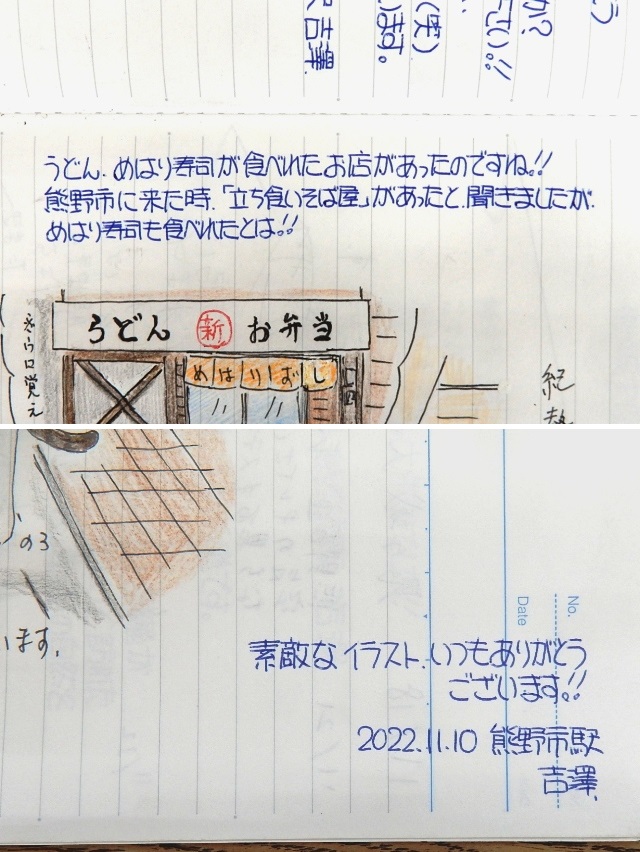 か?
さい。!!
(笑)
ます。
吉澤.
うどん、めはり寿司が食べれたお店があったのですね。!!
熊野市に来た時、「立ち食いそば屋」があったと、聞きましたが、
めはり寿司も食べれたとは。!!
うどん 新 お弁当
めはりずし
ウロ覚え
紀勢
の3
います。
No.
Date
素敵なイラスト、いつもありがとう
ございます。!!
2022.11.10 熊野市駅
吉澤.